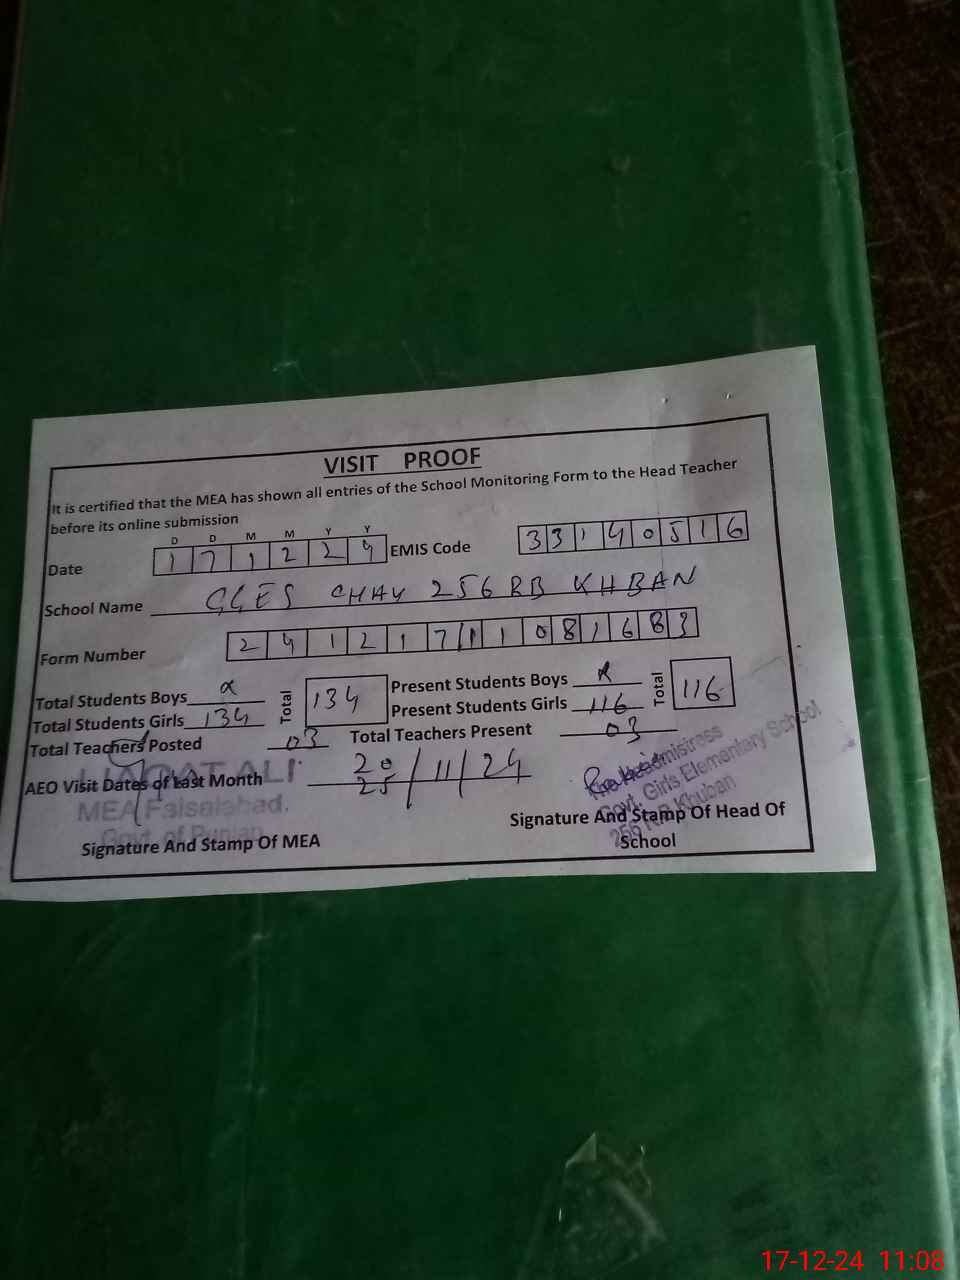 VISIT PROOF
It is certified that the MEA has shown all entries of the School Monitoring Form to the Head Teacher
before its online submission
D D M M Y Y
Date 1 7 1 2 2 4 EMIS Code 3 3 1 4 0 5 1 6
School Name GGES CHAK 256 RB KHBAN
Form Number 2 4 1 2 1 7 1 1 0 8 1 6 8 3
Total Students Boys x Total 134 Present Students Boys x Total 116
Total Students Girls 134 Present Students Girls 116
Total Teachers Posted 03 Total Teachers Present 03
AEO Visit Dates of Last Month 20 25 / 11 / 24
LIAQAT ALI
MEA Faisalabad.
Govt. of Punjab
Headmistress
Govt. Girls Elementary School
256 R.B Khuban
Signature And Stamp Of MEA
Signature And Stamp Of Head Of
School
17-12-24 11:08